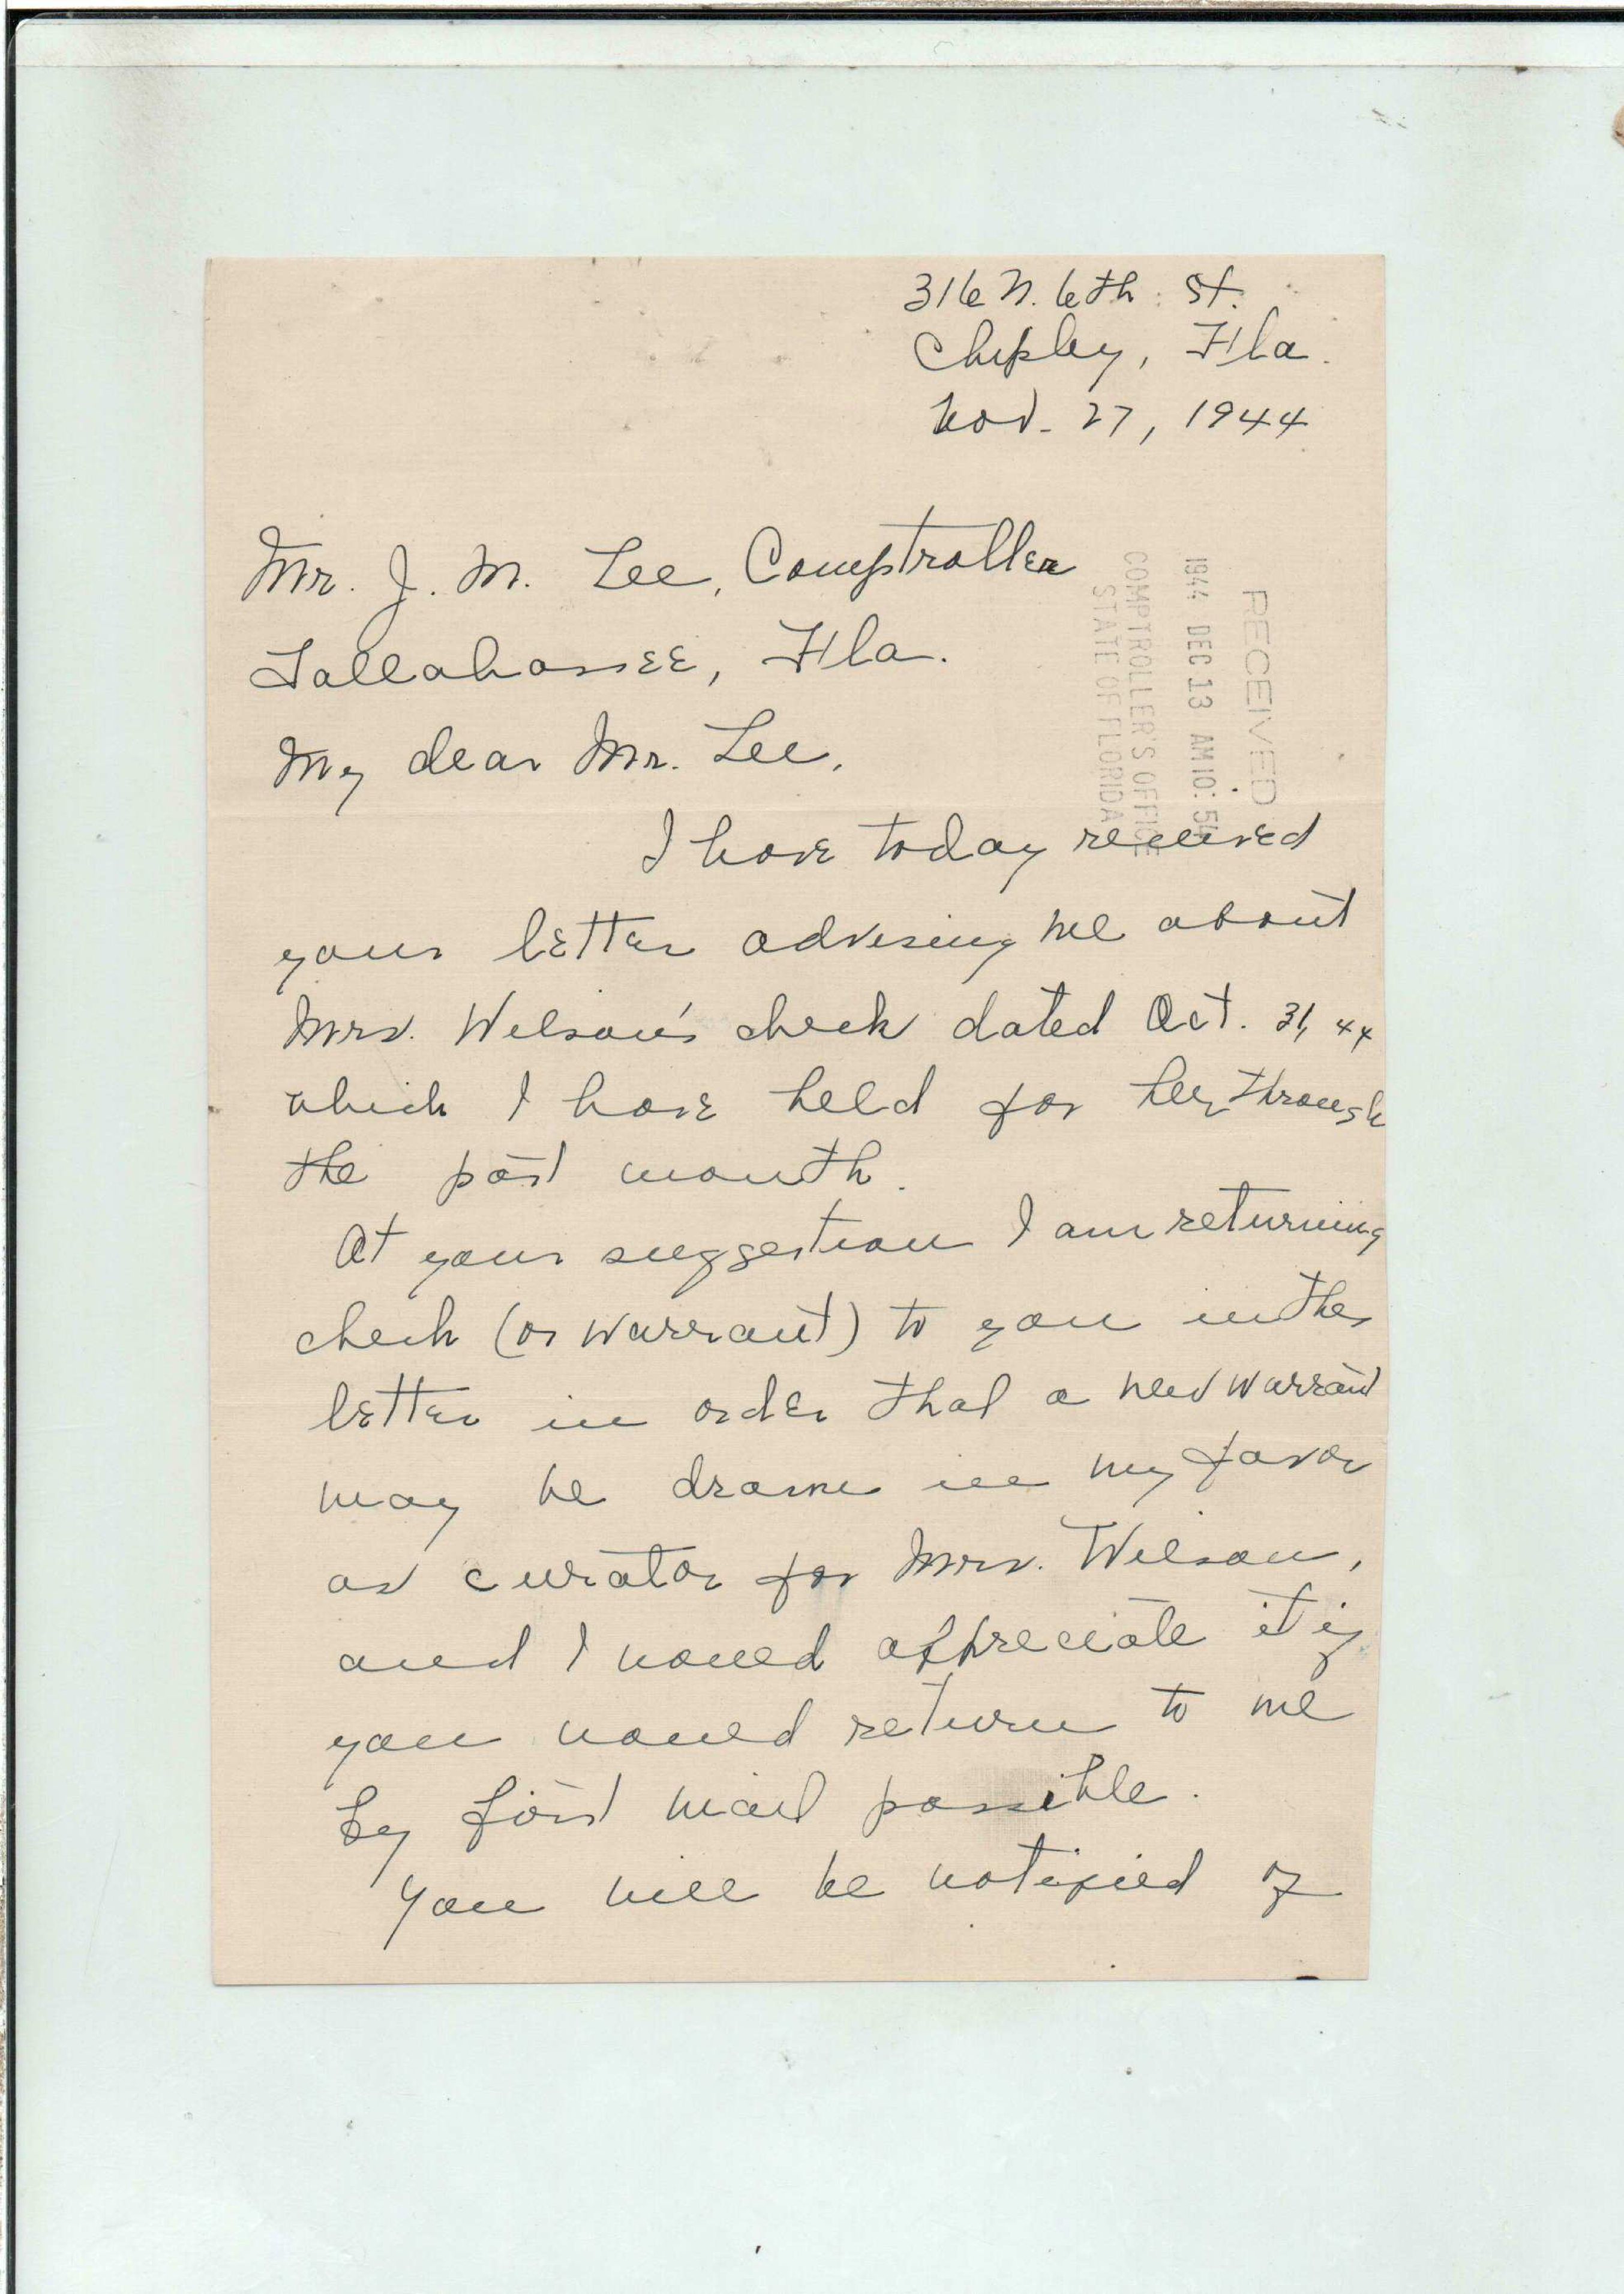 316 N. 6th St.
Chipley, Fla.
Nov. 27, 1944
Mr. J. M. Lee, Comptroller
Tallahassee, Fla.
My dear Mr. Lee,
RECEIVED
1944 DEC 13 AM 10:
COMPTROLLER'S OFFICE
STATE OF FLORIDA
I have today received
your letter advising me about
Mrs. Wilson's check dated Oct. 31, 44
which I have held for her through
the past month.
At your suggestion I am returning
check (or warrant) to you in this
letter in order that a new warrant
may be drawn in my favor
as curator for Mrs. Wilson,
and I would appreciate it if
you would return to me
by first mail possible.
You will be notified of